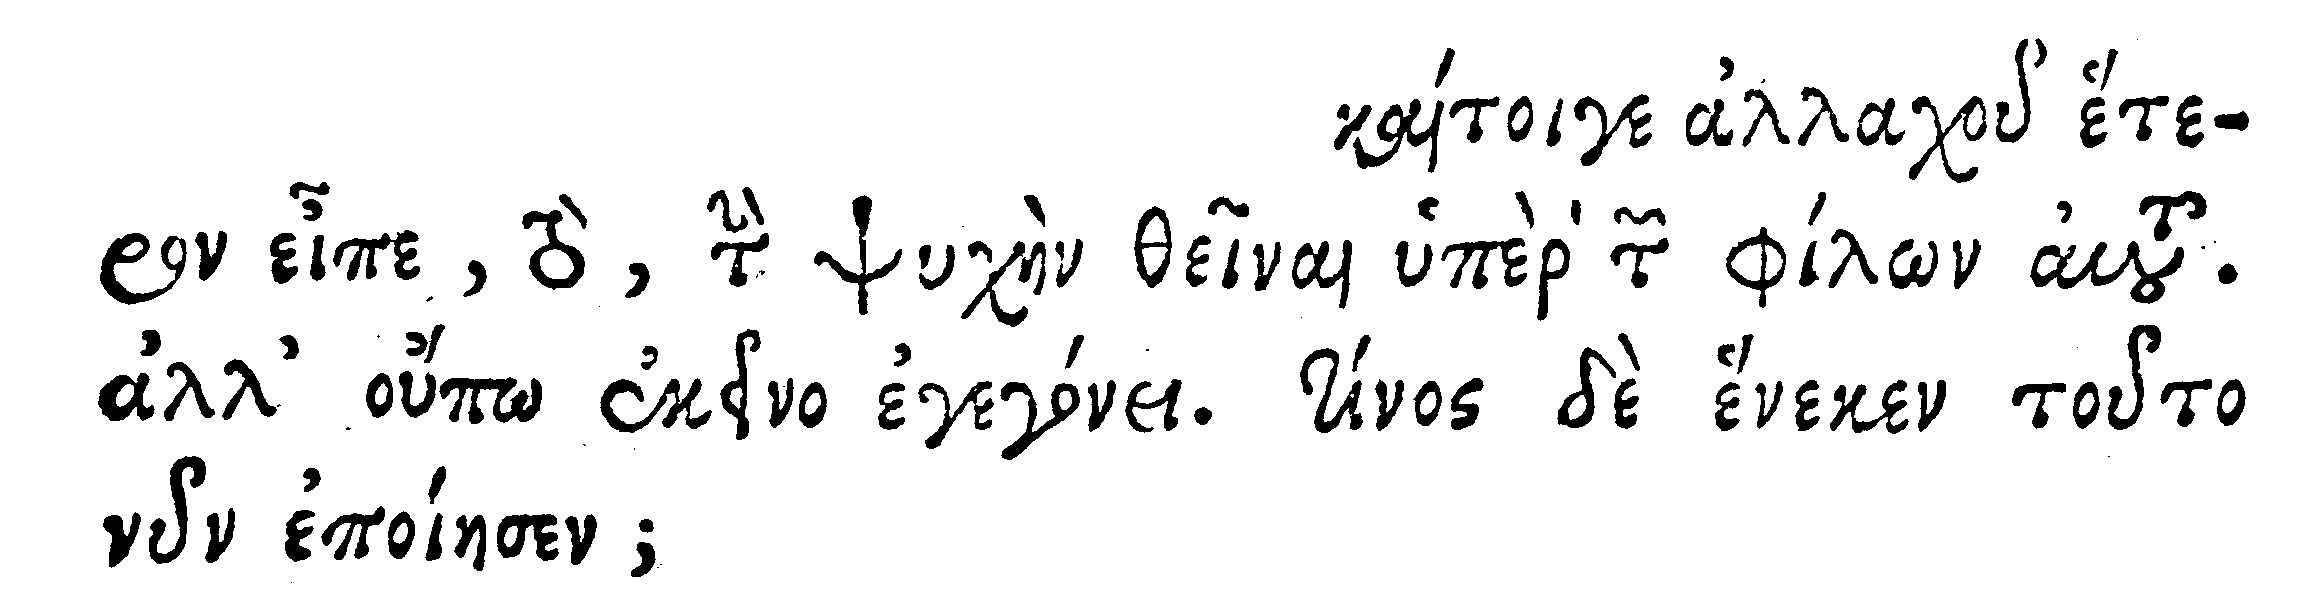 καίτοιγε ἀλλαχοῦ ἕτε-
ρον εἶπε, τὸ, τὴν ψυχὴν θεῖναι ὑπὲρ τῶν φίλων αὐτοῦ.
ἀλλ' οὔπω ἐκεῖνο ἐγεγόνει. τίνος δὲ ἕνεκεν τοῦτο
νῦν ἐποίησεν;